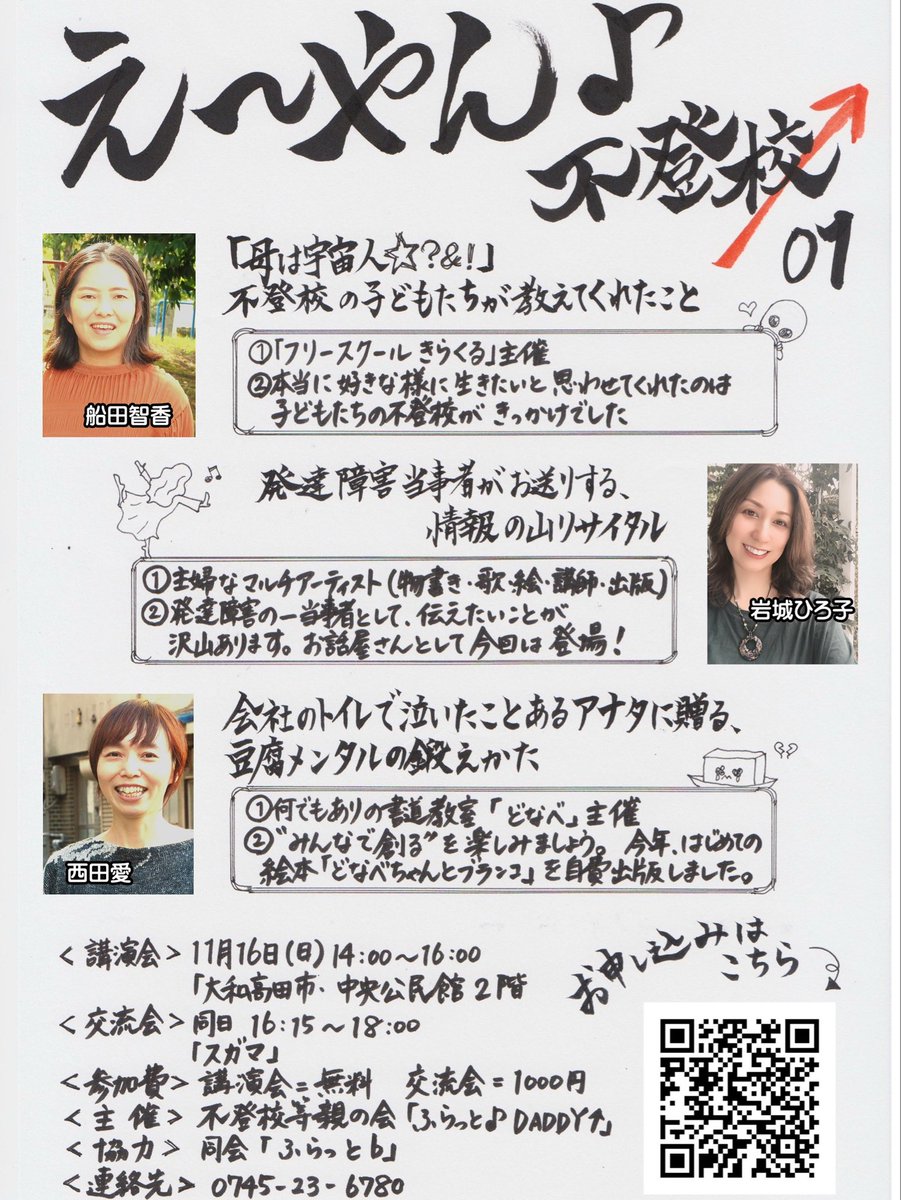 え〜やん♪
不登校
01
「母は宇宙人☆?&!」
不登校の子どもたちが教えてくれたこと
①「フリースクール きらくる」主催
②本当に好きな様に生きたいと思わせてくれたのは
子どもたちの不登校がきっかけでした
船田智香
発達障害当事者がお送りする、
情報の山リサイタル
①主婦なマルチアーティスト(物書き・歌・絵・講師・出版)
②発達障害の一当事者として、伝えたいことが
沢山あります。お話屋さんとして今回は登場!
岩城ひろ子
会社のトイレで泣いたことあるアナタに贈る、
豆腐メンタルの鍛えかた
①何でもありの書道教室「どなべ」主催
②"みんなで創る"を楽しみましょう。今年、はじめての
絵本「どなべちゃんとブランコ」を自費出版しました。
西田愛
<講演会> 11月16日(日) 14:00〜16:00
「大和高田市・中央公民館2階
<交流会> 同日 16:15〜18:00
「スガマ」
<参加費> 講演会=無料 交流会=1000円
<主催> 不登校等親の会「ふらっと♪DADDY↑」
<協力> 同会「ふらっとb」
<連絡先> 0745-23-6780
お申し込みは
こちら